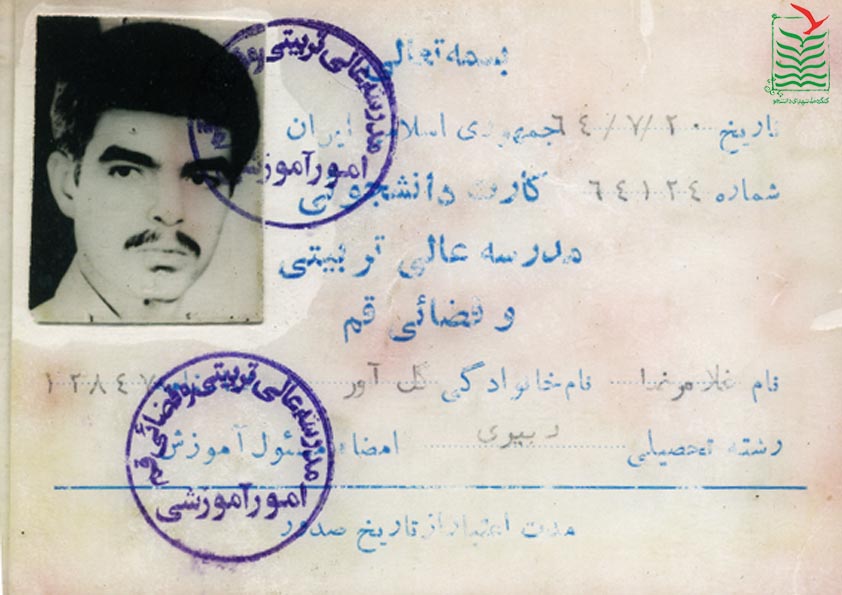 بسمه تعالی
جمهوری اسلامی ایران
تاریخ ۶۴/۷/۲۰
کارت دانشجوئی
شماره ۶۴۱۲۴
مدرسه عالی تربیتی
و قضائی قم
نام غلامرضا نام خانوادگی گل آور ۱۲۸۴۷
رشته تحصیلی دبیری امضاء مسئول آموزش
مدت اعتبار از تاریخ صدور
مدرسه عالی تربیتی
امور آموزشی
مدرسه عالی تربیتی و قضائی قم
امور آموزشی
کنگره ملی شهدای دانشجو